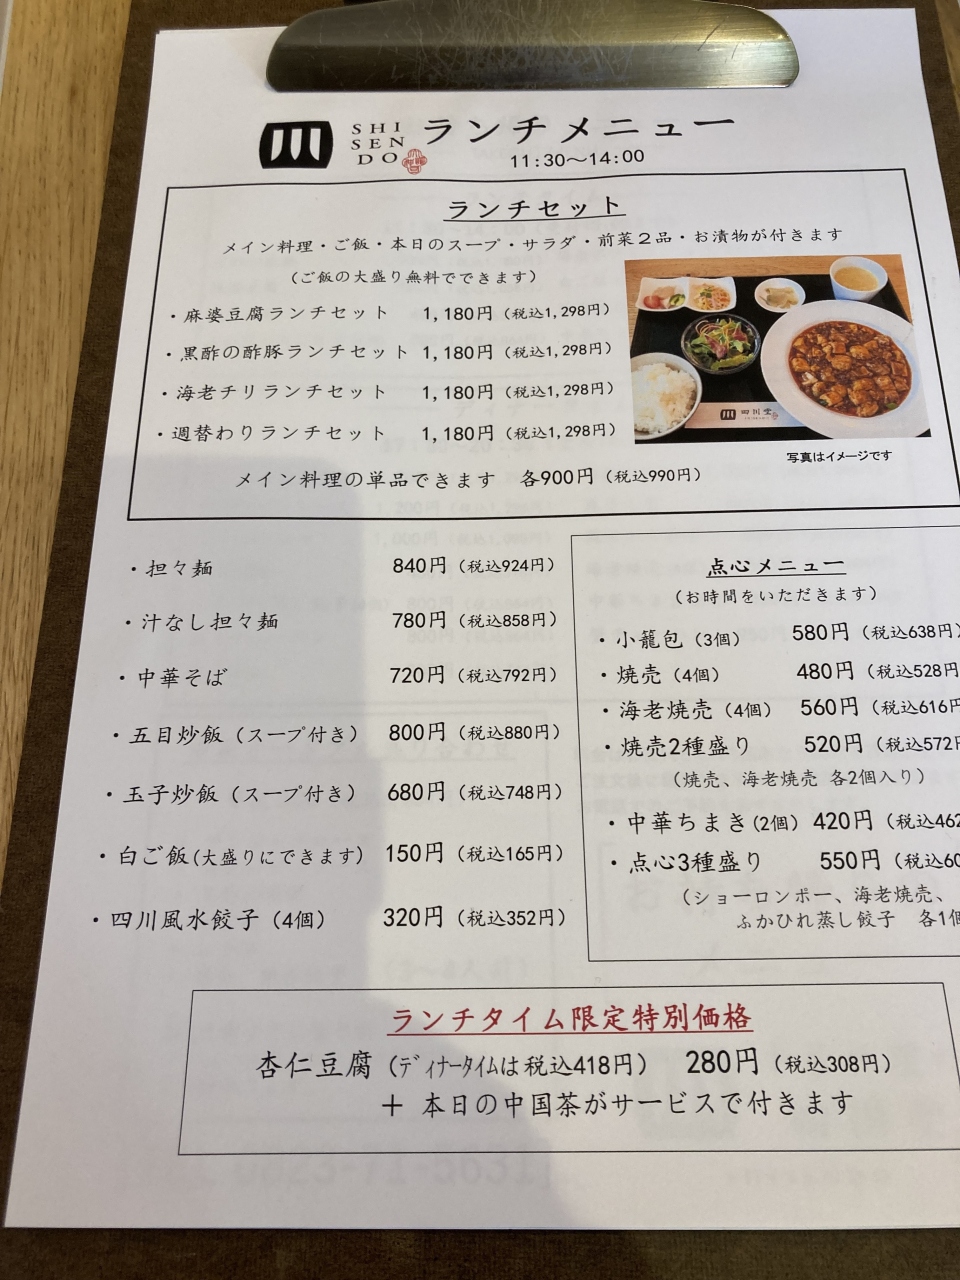 SHI
SEN
DO
ランチメニュー
11:30～14:00
ランチセット
メイン料理・ご飯・本日のスープ・サラダ・前菜２品・お漬物が付きます
（ご飯の大盛り無料でできます）
・麻婆豆腐ランチセット 1,180円（税込1,298円）
・黒酢の酢豚ランチセット 1,180円（税込1,298円）
・海老チリランチセット 1,180円（税込1,298円）
・週替わりランチセット 1,180円（税込1,298円）
四川堂
写真はイメージです
メイン料理の単品できます 各900円（税込990円）
・担々麺 840円（税込924円）
・汁なし担々麺 780円（税込858円）
・中華そば 720円（税込792円）
・五目炒飯（スープ付き） 800円（税込880円）
・玉子炒飯（スープ付き） 680円（税込748円）
・白ご飯(大盛りにできます) 150円（税込165円）
・四川風水餃子（4個） 320円（税込352円）
点心メニュー
（お時間をいただきます）
・小籠包（3個） 580円（税込638円）
・焼売（4個） 480円（税込528円
・海老焼売（4個） 560円（税込616円
・焼売2種盛り 520円（税込572円
（焼売、海老焼売 各2個入り）
・中華ちまき(2個) 420円（税込462
・点心3種盛り 550円（税込60
（ショーロンポー、海老焼売、
ふかひれ蒸し餃子 各1個
ランチタイム限定特別価格
杏仁豆腐（ディナータイムは税込418円） 280円（税込308円）
＋ 本日の中国茶がサービスで付きます